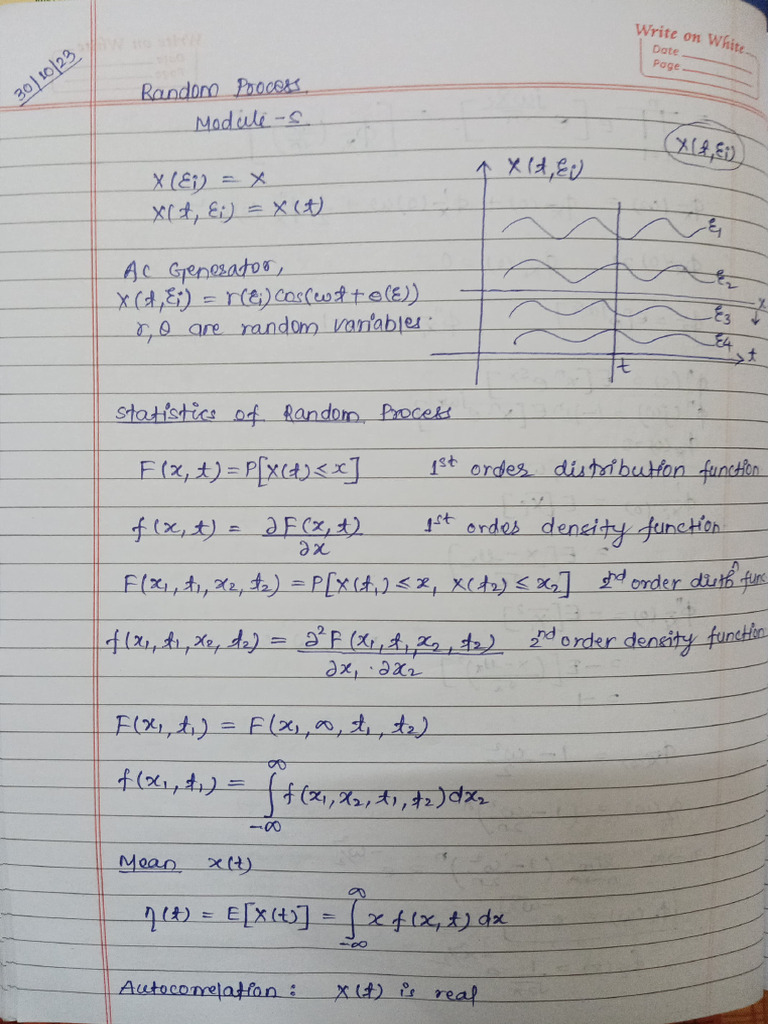 Write on White
Date
Page
30/10/23
Random Process
Module-5
X(t,ξi)
X(ξi) = X
X(t, ξi) = X(t)
X(t,ξi)
ξ1
ξ2
x
ξ3
ξ4
t
t
Ac Generator,
X(t,ξi) = r(ξi)cos(ωt + θ(ξ))
r,θ are random variables.
Statistics of Random Process
F(x,t) = P[X(t) ≤ x] 1st order distribution function
f(x,t) = ∂F(x,t)/∂x 1st order density function
F(x1,t1,x2,t2) = P[X(t1) ≤ x, X(t2) ≤ x2] 2nd order distn func
f(x1,t1,x2,t2) = ∂²F(x1,t1,x2,t2)/∂x1·∂x2 2nd order density function
F(x1,t1) = F(x1,∞,t1,t2)
f(x1,t1) = ∫_{-∞}^{∞} f(x1,x2,t1,t2)dx2
Mean x(t)
η(t) = E[X(t)] = ∫_{-∞}^{∞} x f(x,t) dx
Autocorrelation: X(t) is real